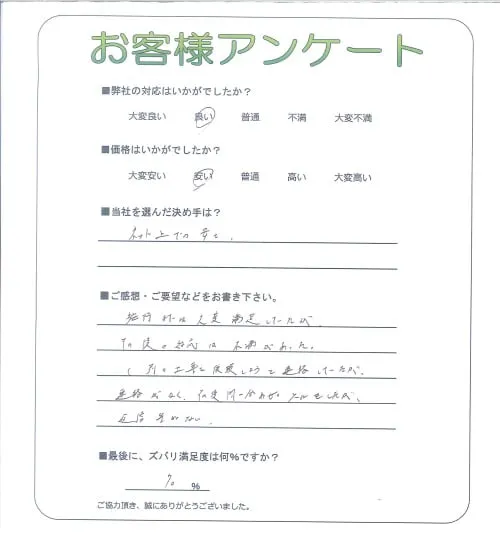 お客様アンケート
■弊社の対応はいかがでしたか？
大変良い 良い 普通 不満 大変不満
■価格はいかがでしたか？
大変安い 安い 普通 高い 大変高い
■当社を選んだ決め手は？
ネット上での安さ。
■ご感想・ご要望などをお書き下さい。
施行 は大変満足していたが
その後の対応は不満があった。
別の工事を依頼しようと連絡していたが、
連絡がなく、何度問い合わせ メールをしたが、
返信 がない
■最後に、ズバリ満足度は何％ですか？
70 ％
ご協力頂き、誠にありがとうございました。